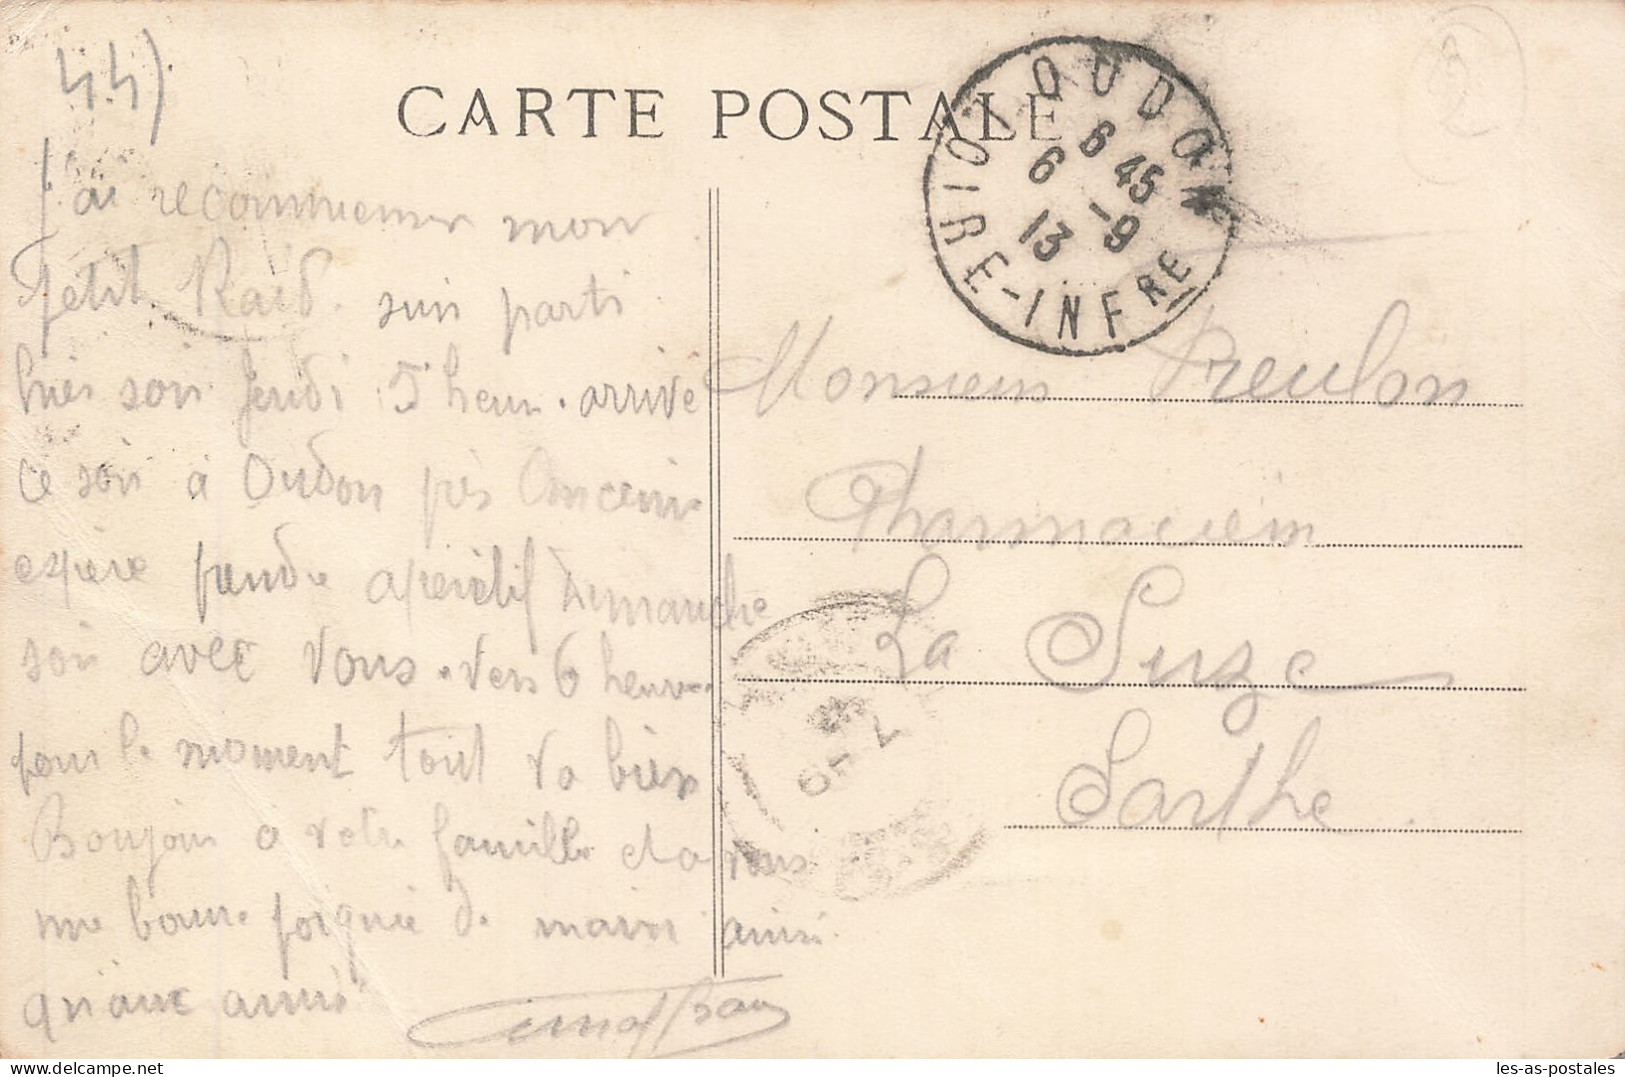 44)
CARTE POSTALE
OUDON
6 45
6 - 9
13
LOIRE-INFRE
J'ai recommencer mon
Petit Raid. suis parti
hier soir Jeudi 5 heur. arrivé
ce soir à Oudon près Ancenis
espère prendre aperitif Dimanche
soir avec vous. vers 6 heures.
pour le moment tout va bien
Bonjour a votre famille et a vous
une bonne poignée de main ainsi
qu'aux amis
Monsieur Preulon
Pharmacien
La Suze
Sarthe
les-as-postales